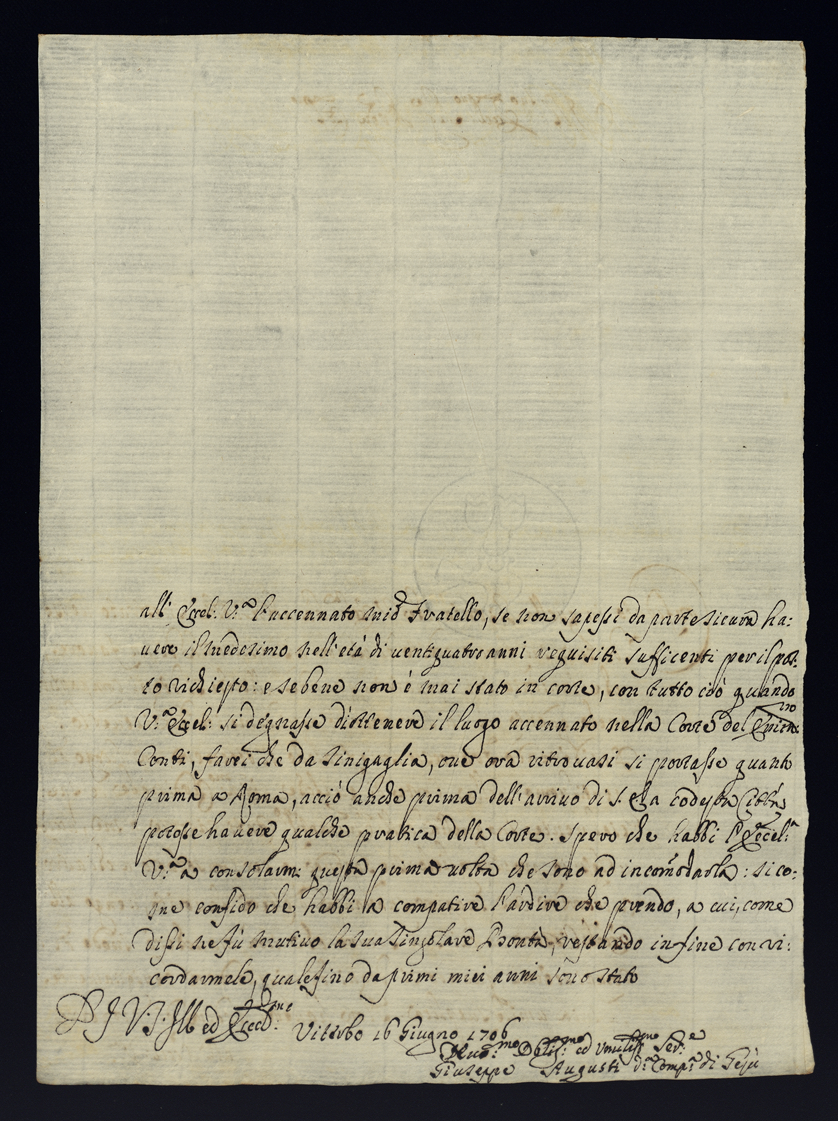 all' Eccel: V.ra l'accennato mio Fratello, se non sapessi da parte sicura ha:
vere il medesimo nell'età di ventiquatro anni requisiti sufficenti per il pos:
to richiesto: e sebene non è mai stato in corte, con tutto ciò quando
V.ra Eccel: si degnasse d'ottenere il luogo accennato nella Corte del
Conti, farei che da Sinigaglia, ove ora ritrovasi si portasse quant
prima a Roma, acciò anche prima dell'arrivo di S. Eza in codesta Città
potesse havere qualche pratica della Corte. Spero che habbi l'Eccel:a
V.ra a consolarmi questa prima volta che sono ad incomodarla: si co:
me confido che habbi a compatire l'ardire che prendo, a cui, come
dissi ne fù mutivo la sua singolare Bontà, restando in fine con ri:
cordarmele, quale fino da primi miei anni sono stato
D V. S. Ill ed Eccel:
Viterbo 16 Giugno 1706
Obligmo ed Umilissmo Ser:e
Giuseppe Augusti d.a Comp.a di Gesù